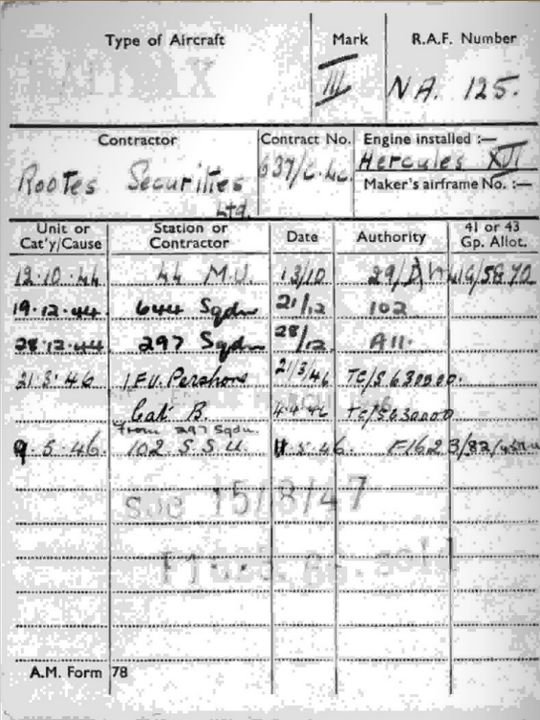 Type of Aircraft Mark R.A.F. Number
HALIFAX III NA. 125.
Contractor Contract No. Engine installed :—
Rootes Securities Ltd. 637/C.4c. Hercules XVI
Maker's airframe No. :—
Unit or Cat'y/Cause Station or Contractor Date Authority 41 or 43 Gp. Allot.
12.10.44 44 M.U. 13/10 29/
19.12.44 644 Sqdn 21/12 102
28.12.44 297 Sqdn 28/12 A11.
21.3.46 21/3/46
Cat B. 4.4.46
from 297 Sqdn.
9.5.46. 102 S S U. 11.5.46.
SOC 15/8/47
A.M. Form 78